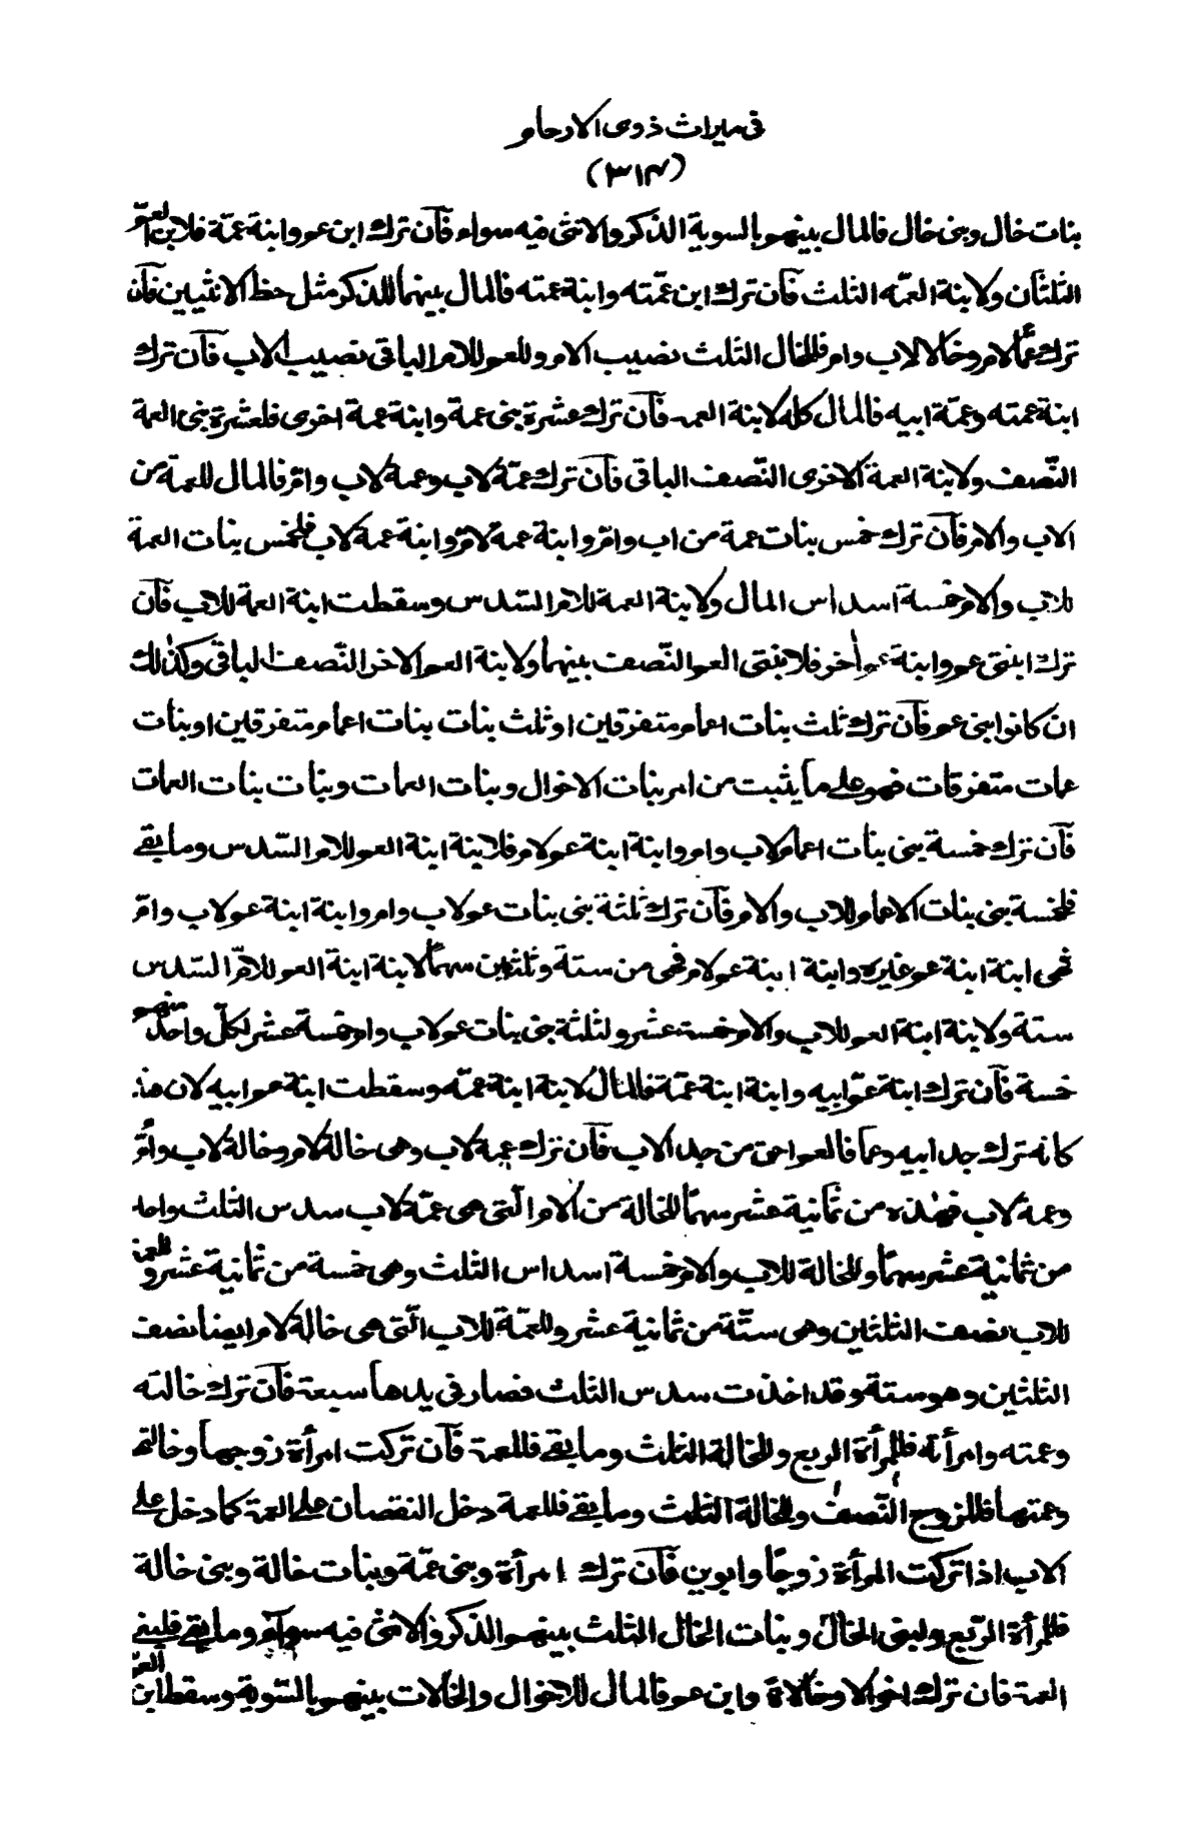 في ميراث ذوى الارحام
(٣١٤)
بنات خال وبنى خال فالمال بينهم بالسوية الذكر والانثى فيه سواء فآن ترك ابن عم وابنة عمّة فلابن العمّ
الثلثان ولابنة العمّه الثلث فآن ترك ابن عمّته وابنة عمته فالمال بينهما للذكر مثل حظ الانثيين فآن
ترك عمّا لام وخالا لاب وام فللخال الثلث نصيب الام وللعم للام الباقى نصيب الاب فآن ترك
ابنة عمته وعمّة ابيه فالمال كله لابنة العمة فآن ترك عشرة بنى عمة وابنة عمة اخرى فلعشرة بنى العمة
النّصف ولابنة العمة الاخرى النّصف الباقى فآن ترك عمّة لاب وعمة لاب وامّ فالمال للعمة من
الاب والام فآن ترك خمس بنات عمة من اب وامّ وابنة عمة لامّ وابنة عمة لاب فلخمس بنات العمة
للاب والام خمسة اسداس المال ولابنة العمة للام السّدس وسقطت ابنة العمة للاب فآن
ترك ابنتى عم وابنة عم أخر فلابنتى العم النّصف بينهما ولابنة العم الاخر النّصف الباقى وكذلك
ان كانوا بنى عم فآن ترك ثلث بنات اعمام متفرقين او ثلث بنات بنات اعمام متفرقين او بنات
عمات متفرقات فهو على ما يثبت من امر بنات الاخوال وبنات العمات وبنات بنات العمات
فآن ترك خمسة بنى بنات اعمام لاب وام وابنة ابنة عم لام فلابنة ابنة العم للام السّدس وما بقى
فلخمسة بنى بنات الاعمام للاب والام فآن ترك ثلثة بنى بنات عم لاب وام وابنة ابنة عم لاب وامّ
فهى ابنة ابنة عم غيره وابنة ابنة عم لام فهى من ستة وثلثين سهمًا لابنة ابنة العم للامّ السّدس
ستة ولابنة ابنة العم للاب والام خمسة عشر ولثلثة بنى بنات عم لاب وام خمسة عشر لكلّ واحد منهم
خمسة فآن ترك ابنة عمّ ابيه وابنة ابنة عمّة فالمال لابنة ابنة عمّه وسقطت ابنة عم ابيه لان هذا
كانه ترك جد ابيه وعمّا فالعم احق من جد الاب فآن ترك عمة لاب وهى خالة لام وخالة لاب وأمّ
وعمة لاب فهذه من ثمانية عشر سهمًا للخالة من الام الّتى هى عمّة لاب سدس الثلث واحد
من ثمانية عشر سهمًا وللخالة للاب والام خمسة اسداس الثلث وهى خمسة من ثمانية عشر وللعمة
للاب نصف الثلثين وهى ستّة من ثمانية عشر وللعمّة للاب الّتى هى خالة لام ايضا نصف
الثلثين وهو ستة وقد اخذت سدس الثلث فصار فى يدها سبعة فآن ترك خالته
وعمته وامرأته فللمرأة الربع وللخالة الثلث وما بقى فللعمة فآن تركت امرأة زوجها وخالتها
وعمتها فللزوج النّصف وللخالة الثلث وما بقى فللعمة دخل النقصان على العمة كما دخل على
الاب اذا تركت المرأة زوجًا وابوين فآن ترك امرأة وبنى عمّة وبنات خالة وبنى خالة
فللمرأة الرّبع ولبنى الخال وبنات الخال الثلث بينهم الذكر والانثى فيه سواء وما بقى فلبنى
العمة فان ترك اخوالا وخالاة وابن عم فالمال للاخوال والخالات بينهم بالسّوية وسقط ابن العمّ